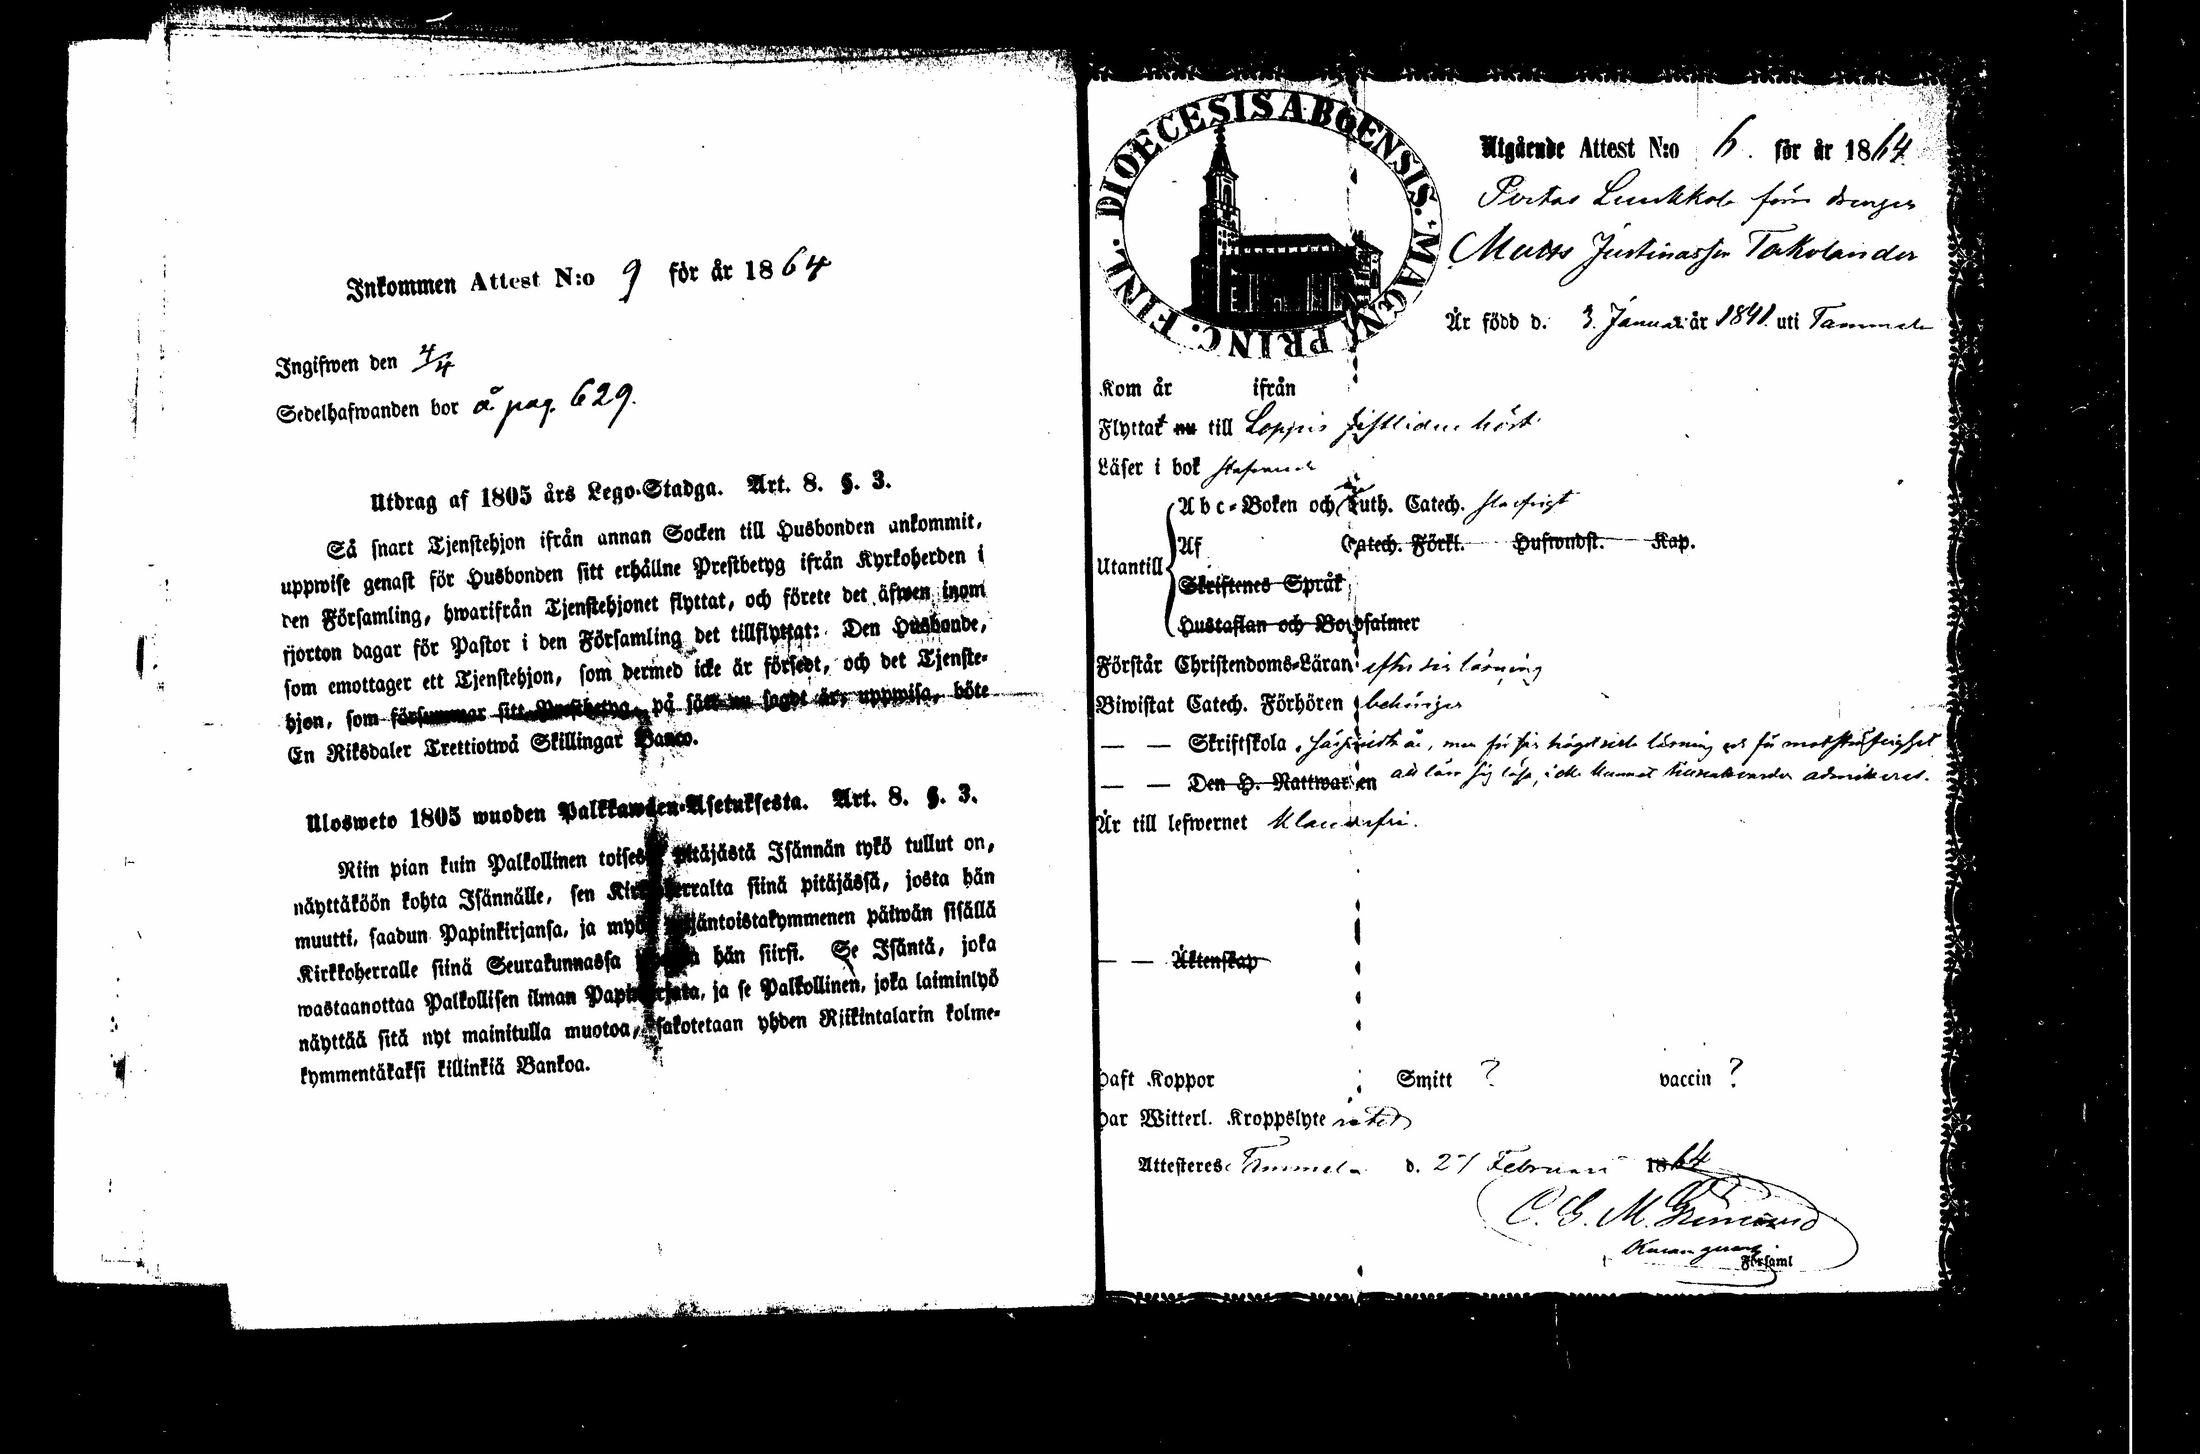 Inkommen Attest N:o 9 för år 1864
Ingifwen den 4/4
Sedelhafwanden bor å pag. 629.
Utdrag af 1805 års Lego-Stadga. Art. 8. §. 3.
Så snart Tjenstehjon ifrån annan Socken till Husbonden ankommit,
uppwise genast för Husbonden sitt erhållne Prestbetyg ifrån Kyrkoherden i
den Församling, hwarifrån Tjenstehjonet flyttat, och förete det äfwen inom
fjorton dagar för Pastor i den Församling det tillflyttat: Den Husbonde,
som emottager ett Tjenstehjon, som dermed icke är försedt, och det Tjenste-
hjon, som försummar sitt Prestbetyg, på sätt nu sagdt är, uppwisa, böte
En Riksdaler Trettiotwå Skillingar Banco.
Ulosweto 1805 wuoden Palkkawäen-Asetuksesta. Art. 8. §. 3.
Niin pian kuin Palkollinen toisesta pitäjästä Isännän tykö tullut on,
näyttäköön kohta Isännälle, sen Kirkkoherralta siinä pitäjässä, josta hän
muutti, saadun Papinkirjansa, ja myös neljäntoistakymmenen päiwän sisällä
Kirkkoherralle siinä Seurakunnassa johonka hän siirsi. Se Isäntä, joka
wastaanottaa Palkollisen ilman Papinkirjata, ja se Palkollinen, joka laiminlyö
näyttää sitä nyt mainitulla muotoa, sakotetaan yhden Riikintalarin kolme-
kymmentäkaksi killinkiä Bankoa.
DIOECESIS ABOENSIS. MAGN. PRINC. FINL.
Utgående Attest N:o 6. för år 1864
förre drengen
Matts Justinasson Takolander
Är född d. 3. Januari år 1841. uti Tammela
Kom år ifrån
Flyttat nu till Loppis sistlidne höst
Läser i bok stafwande
Abc-Boken och Luth. Catech.
Utantill
Af Catech. Förkl. Hufwudst. Kap.
Skriftenes Språk
Hustaflan och Botpsalmer
Förstår Christendoms-Läran efter sin läsning
Biwistat Catech. Förhören behörigen
— — Skriftskola
— — Den H. Nattwarden
Är till lefwernet klanderfri.
— — Äktenskap
Haft Koppor Smitt ? vaccin ?
Har Witterl. Kroppslyte
Attesteres Tammela d. 27 Februari 1864
C. G. M.
Församl